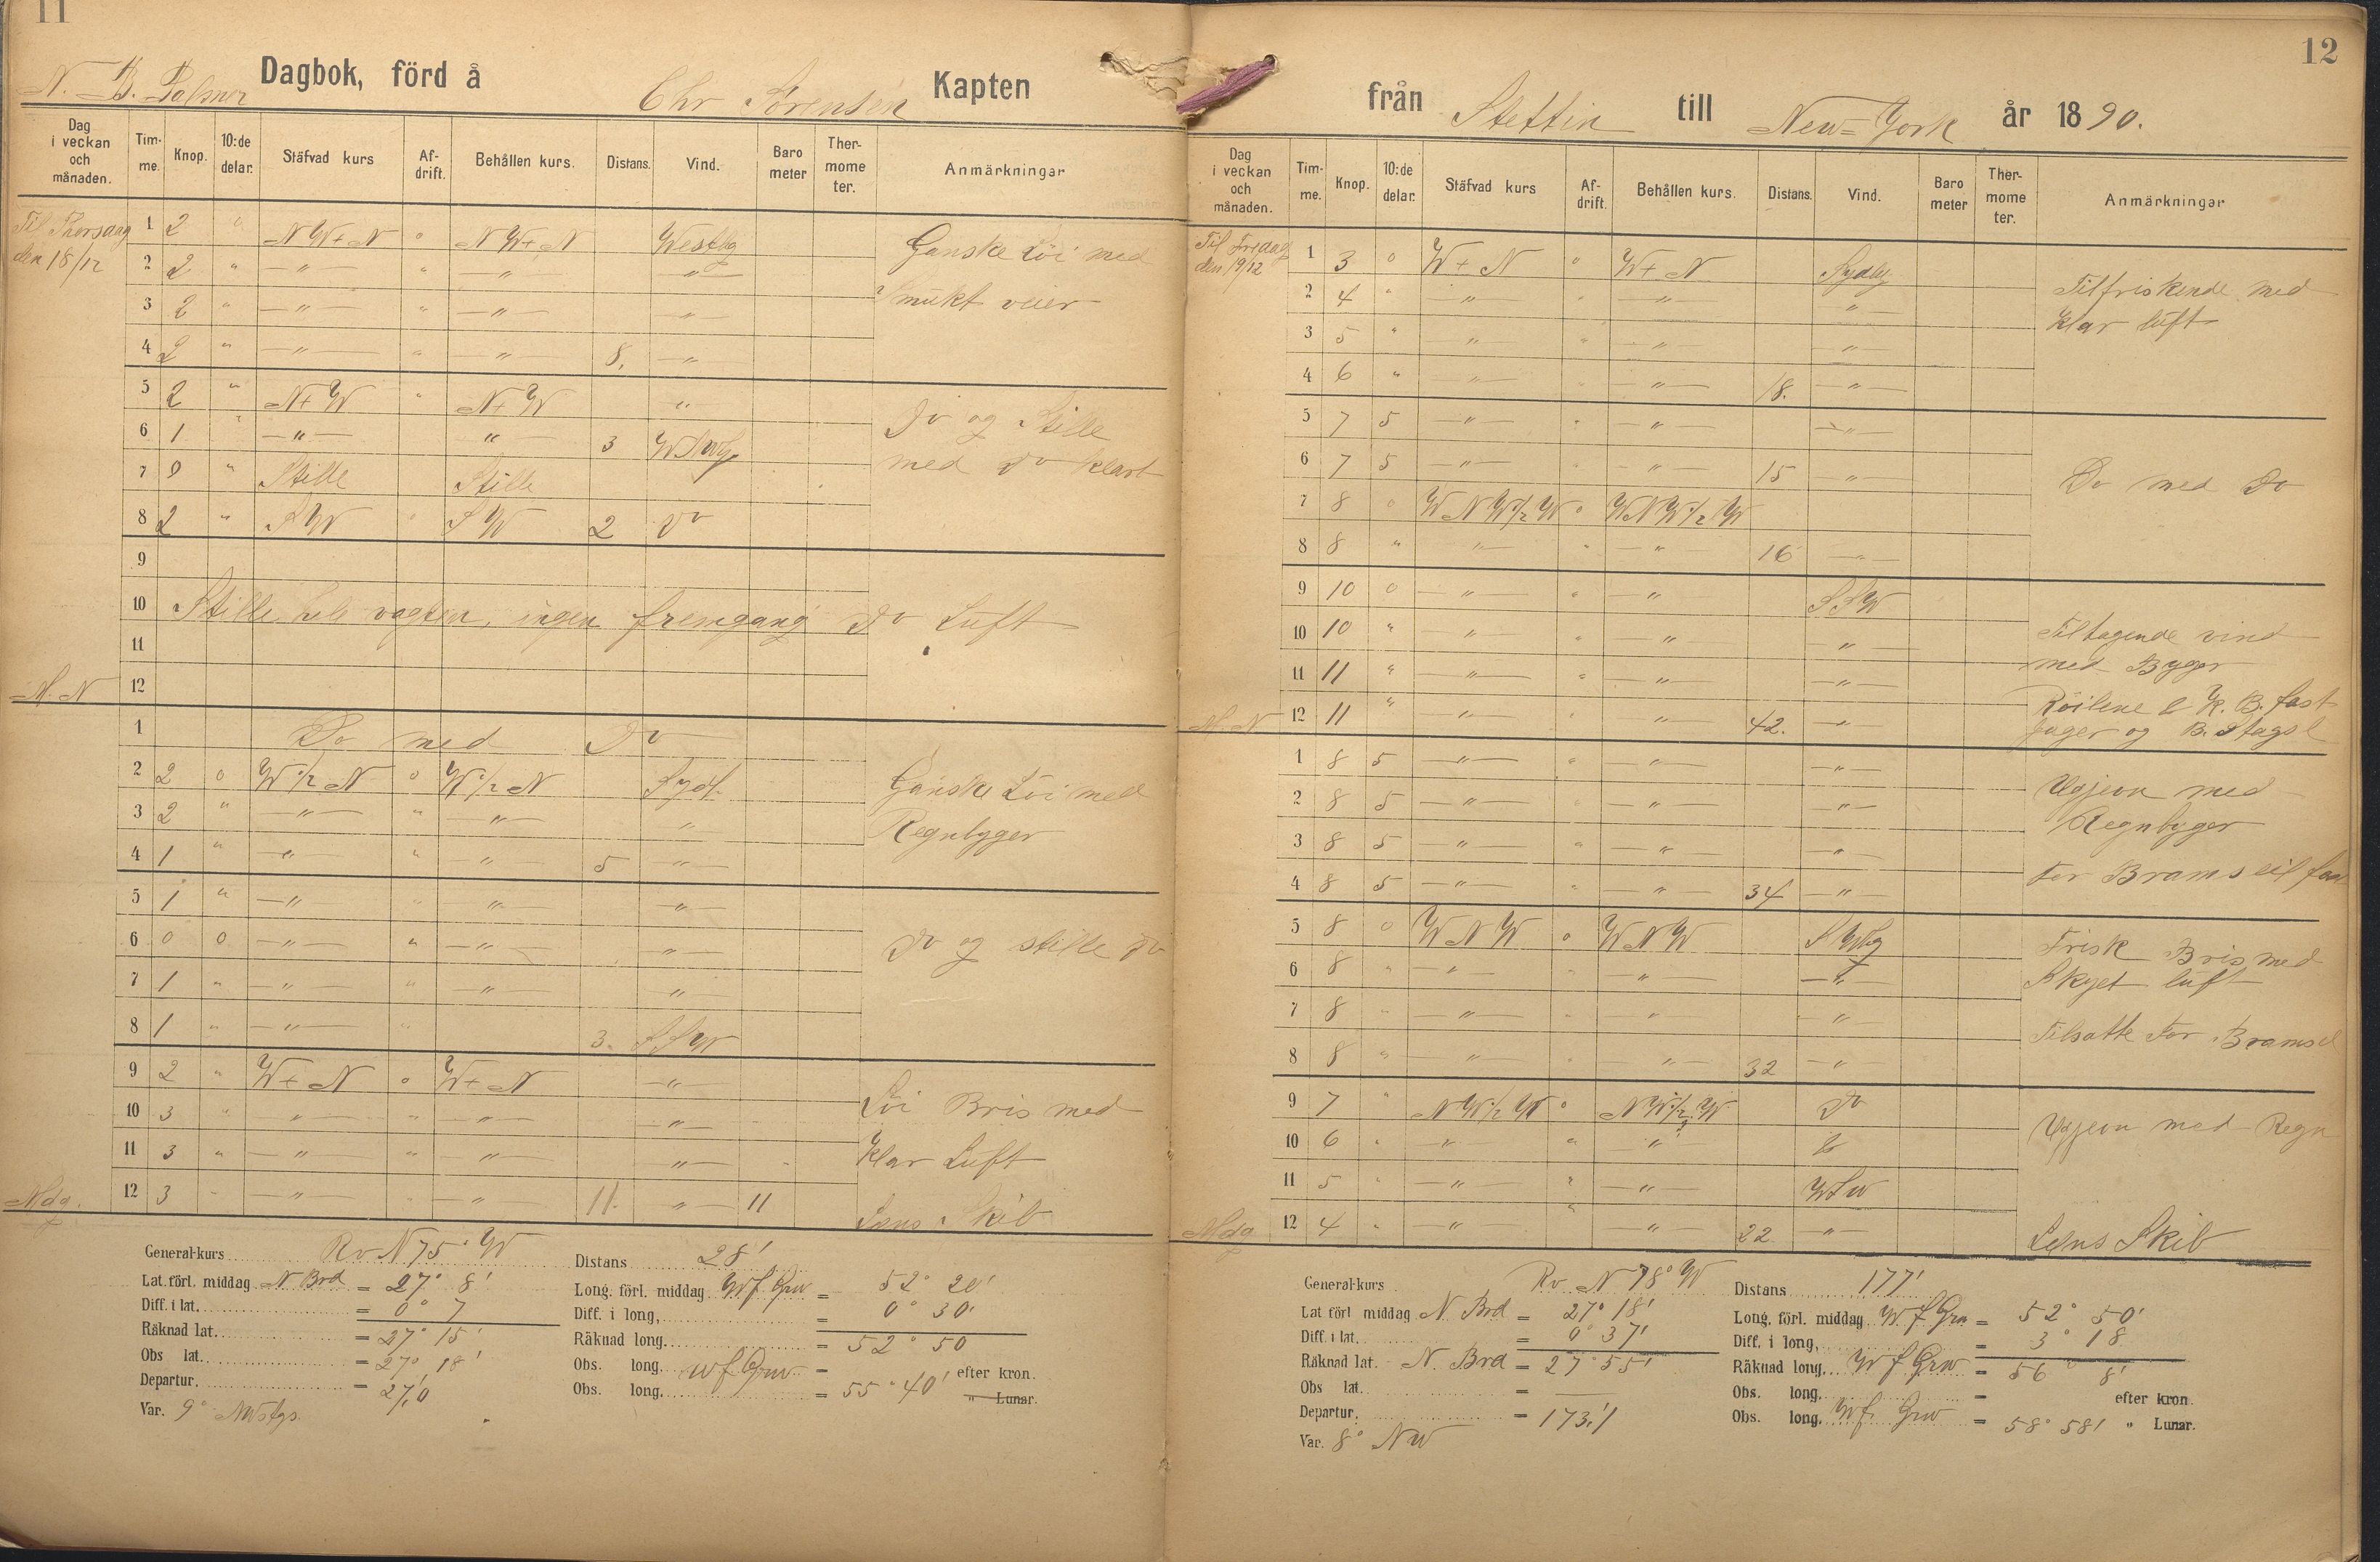 11
N. B. Palmer Dagbok, förd å Chr Sørensen Kapten
Dag i veckan och månaden. Timme. Knop. 10:de delar. Stäfvad kurs Afdrift. Behållen kurs. Distans. Vind. Barometer Thermometer. Anmärkningar
Til Thorsdag den 18/12
1 2 " NW+N " NW+N Westlig Ganske Løi med
2 2 " — " — " — " — — " —
3 2 " — " — " — " — — " — Smukt veier
4 2 " — " — " — " — 8. — " —
5 2 " N+W " N+W "
6 1 " — " — " — 3 WSWlg Do og Stille
7 0 " Stille Stille med Do klart
8 2 " SW " SW 2 Do
9
10 Stille hele vagten, ingen fremgang Do Luft
11
M.N 12
1 Do med Do
2 2 0 W 1/2 N 0 W 1/2 N Sydl. Ganske Løi med
3 2 " — " — " — " — " Regnbyger
4 1 " — " " — " — 5 — " —
5 1 " — " " — " — — " —
6 0 0 — " — " — " — — " — Do og stille Do
7 1 " — " — " — " — — " —
8 1 " — " — " 3. SSW
9 2 " W+N 0 W+N — " —
10 3 " — " — " — " — — " — Løi Bris med
11 3 " — " — " — " — — " — Klar Luft
Mdg. 12 3 " — " — " — " — 11. — " — 11
Lens Skib
General-kurs Rv N 75° W Distans 28'
Lat. förl. middag N Brd = 27° 8' Long. förl. middag W f Grw = 52° 20'
Diff. i lat. = 0° 7 Diff. i long, = 0° 30'
Räknad lat. = 27° 15' Räknad long. = 52° 50
Obs lat. = 27° 18' Obs. long. W f Grw = efter kron.
Departur. = 27,0 Obs. long. = 55° 40' " Lunar.
Var. 9° NWstgs.
12
från Stettin till New-York år 1890.
Dag i veckan och månaden. Timme. Knop. 10:de delar. Stäfvad kurs Afdrift. Behållen kurs. Distans. Vind. Barometer Thermometer. Anmärkningar
Til Fredag den 19/12
1 3 0 W+N " W+N Sydlig
2 4 " " " — " — " Tilfriskende med
3 5 " — " — " — " — " Klar luft
4 6 " — " — " — " — 18. — " —
5 7 5 — " — " — " — — " —
6 7 5 — " — " — " — 15 — " — Do med Do
7 8 0 WNW 1/2 W 0 WNW 1/2 W
8 8 " — " — " — " — 16 — " —
9 10 0 — " — " — " — SSW
10 10 " — " — " — " — — " — Tiltagende vind
11 11 " — " — " — " — — " — med Byger
M.N 12 11 " — " — " — " — 42. — " — Röilene & K. B. fast
Jager og B. Stagsl
1 8 5 — " — " — " — — " —
2 8 5 — " — " — " — — " — Ugjevn med
3 8 5 — " — " — " — " Regnbyger
4 8 5 — " — " — " — 34 — " — For Bramseil fast
5 8 0 WNW 0 WNW SWlg Frisk Bris med
6 8 " — " — " — " — — " — Skyet luft
7 8 " — " — " — " — — " —
8 8 " — " — " — " — 32 — " — Tilsatte For Bramsl
9 7 " NW 1/2 W 0 NW 1/2 W Do
10 6 " — " — " — " — Ugjevn med Regn
11 5 " — " — " — " — WSW
Mdg 12 4 " — " — " — " — 22 — " — Lens Skib
General-kurs Rv N 78° W Distans 177'
Lat. förl. middag N Brd = 27° 18' Long. förl. middag W f Grw = 52° 50'
Diff. i lat. = 0° 37' Diff. i long, = 3° 18
Räknad lat. N. Brd = 27° 55' Räknad long. W f Grw = 56° 8'
Obs lat. = — Obs. long. = efter kron.
Departur. = 173,1 Obs. long. W f. Grw = 58° 58' " Lunar.
Var. 8° NW